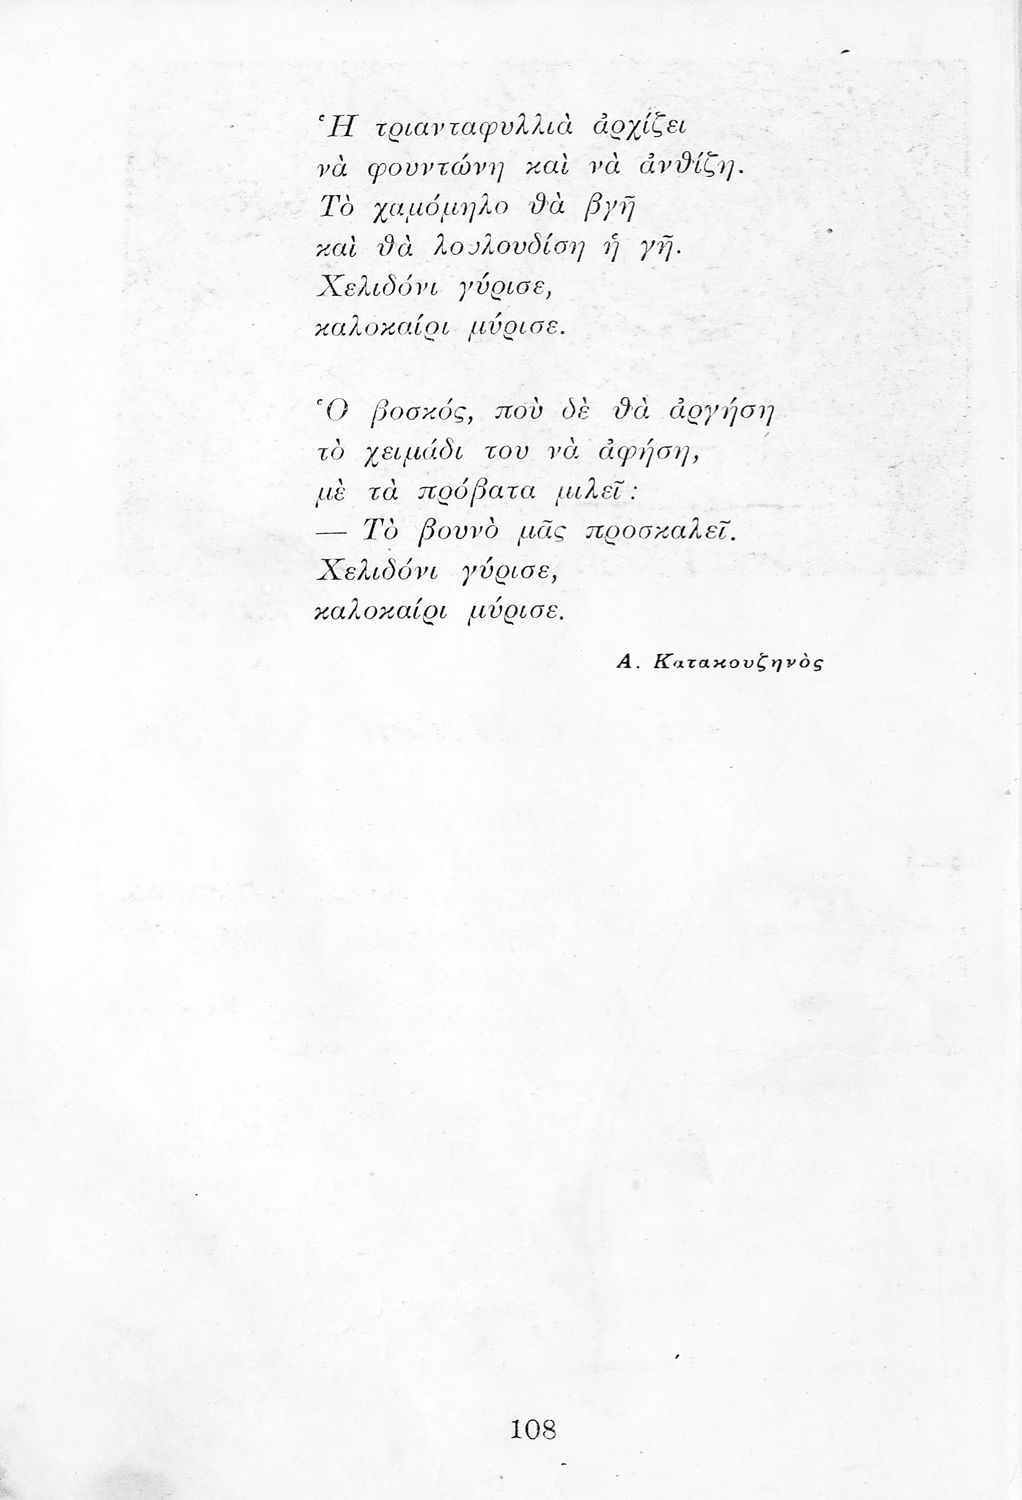 Ἡ τριανταφυλλιὰ ἀρχίζει
νὰ φουντώνη καὶ νὰ ἀνθίζη.
Τὸ χαμόμηλο θὰ βγῆ
καὶ θὰ λουλουδίση ἡ γῆ.
Χελιδόνι γύρισε,
καλοκαίρι μύρισε.
Ὁ βοσκός, ποὺ δὲ θὰ ἀργήση
τὸ χειμάδι του νὰ ἀφήση,
μὲ τὰ πρόβατα μιλεῖ :
— Τὸ βουνὸ μᾶς προσκαλεῖ.
Χελιδόνι γύρισε,
καλοκαίρι μύρισε.
Α. Κατακουζηνὸς
108